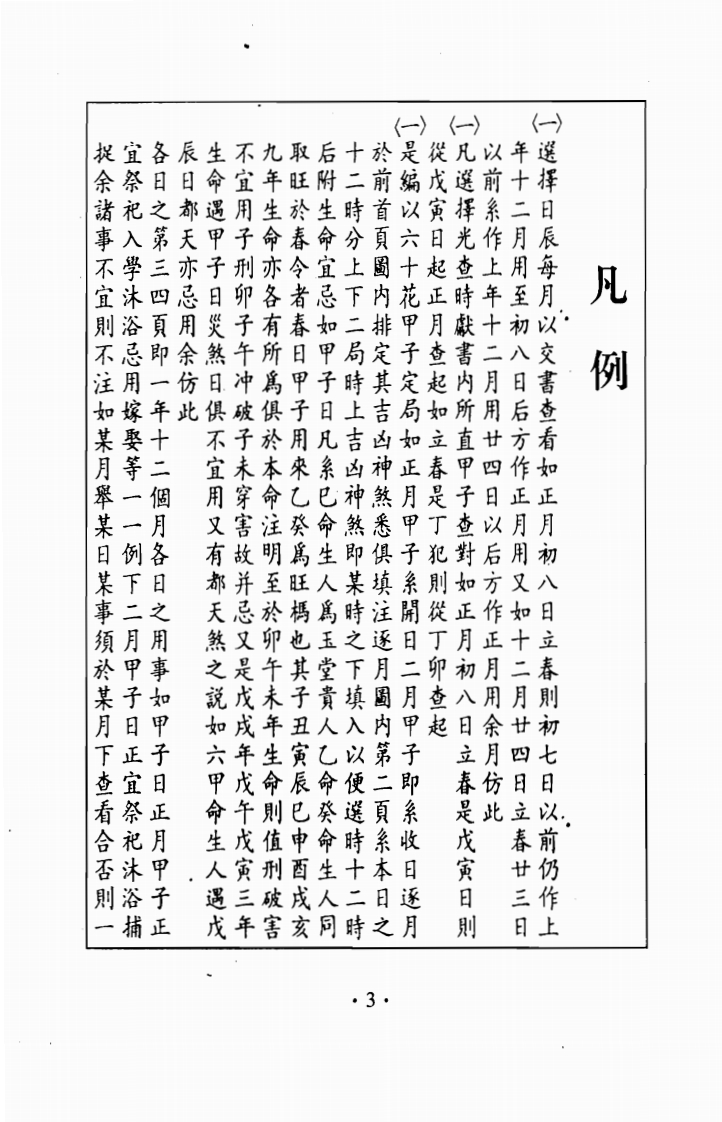 凡例
〈一〉選擇日辰每月以交書查看如正月初八日立春則初七日以前仍作上
年十二月用至初八日后方作正月用又如十二月廿四日立春廿三日
以前系作上年十二月用廿四日以后方作正月用余月仿此
〈一〉凡選擇光查時獻書内所直甲子查對如正月初八日立春是戊寅日則
從戊寅日起正月查起如立春是丁犯則從丁卯查起
〈一〉是編以六十花甲子定局如正月甲子系開日二月甲子即系收日逐月
於前首頁圖内排定其吉凶神煞悉俱填注逐月圖内第二頁系本日之
十二時分上下二局時上吉凶神煞即某時之下填入以便選時十二時
后附生命宜忌如甲子日凡系巳命生人爲玉堂貴人乙命癸命生人同
取旺於春令者春日甲子用來乙癸爲旺榪也其子丑寅辰巳申酉戌亥
九年生命亦各有所爲俱於本命注明至於卯午未年生命則值刑破害
不宜用子刑卯子午冲破子未穿害故并忌又是戊戌年戊午戊寅三年
生命遇甲子日災煞日俱不宜用又有都天煞之説如六甲命生人遇戊
辰日都天亦忌用余仿此
各日之第三四頁即一年十二個月各日之用事如甲子日正月甲子正
宜祭祀入學沐浴忌用嫁娶等一一例下二月甲子日正宜祭祀沐浴捕
捉余諸事不宜則不注如某月舉某日某事須於某月下查看合否則一
·3·